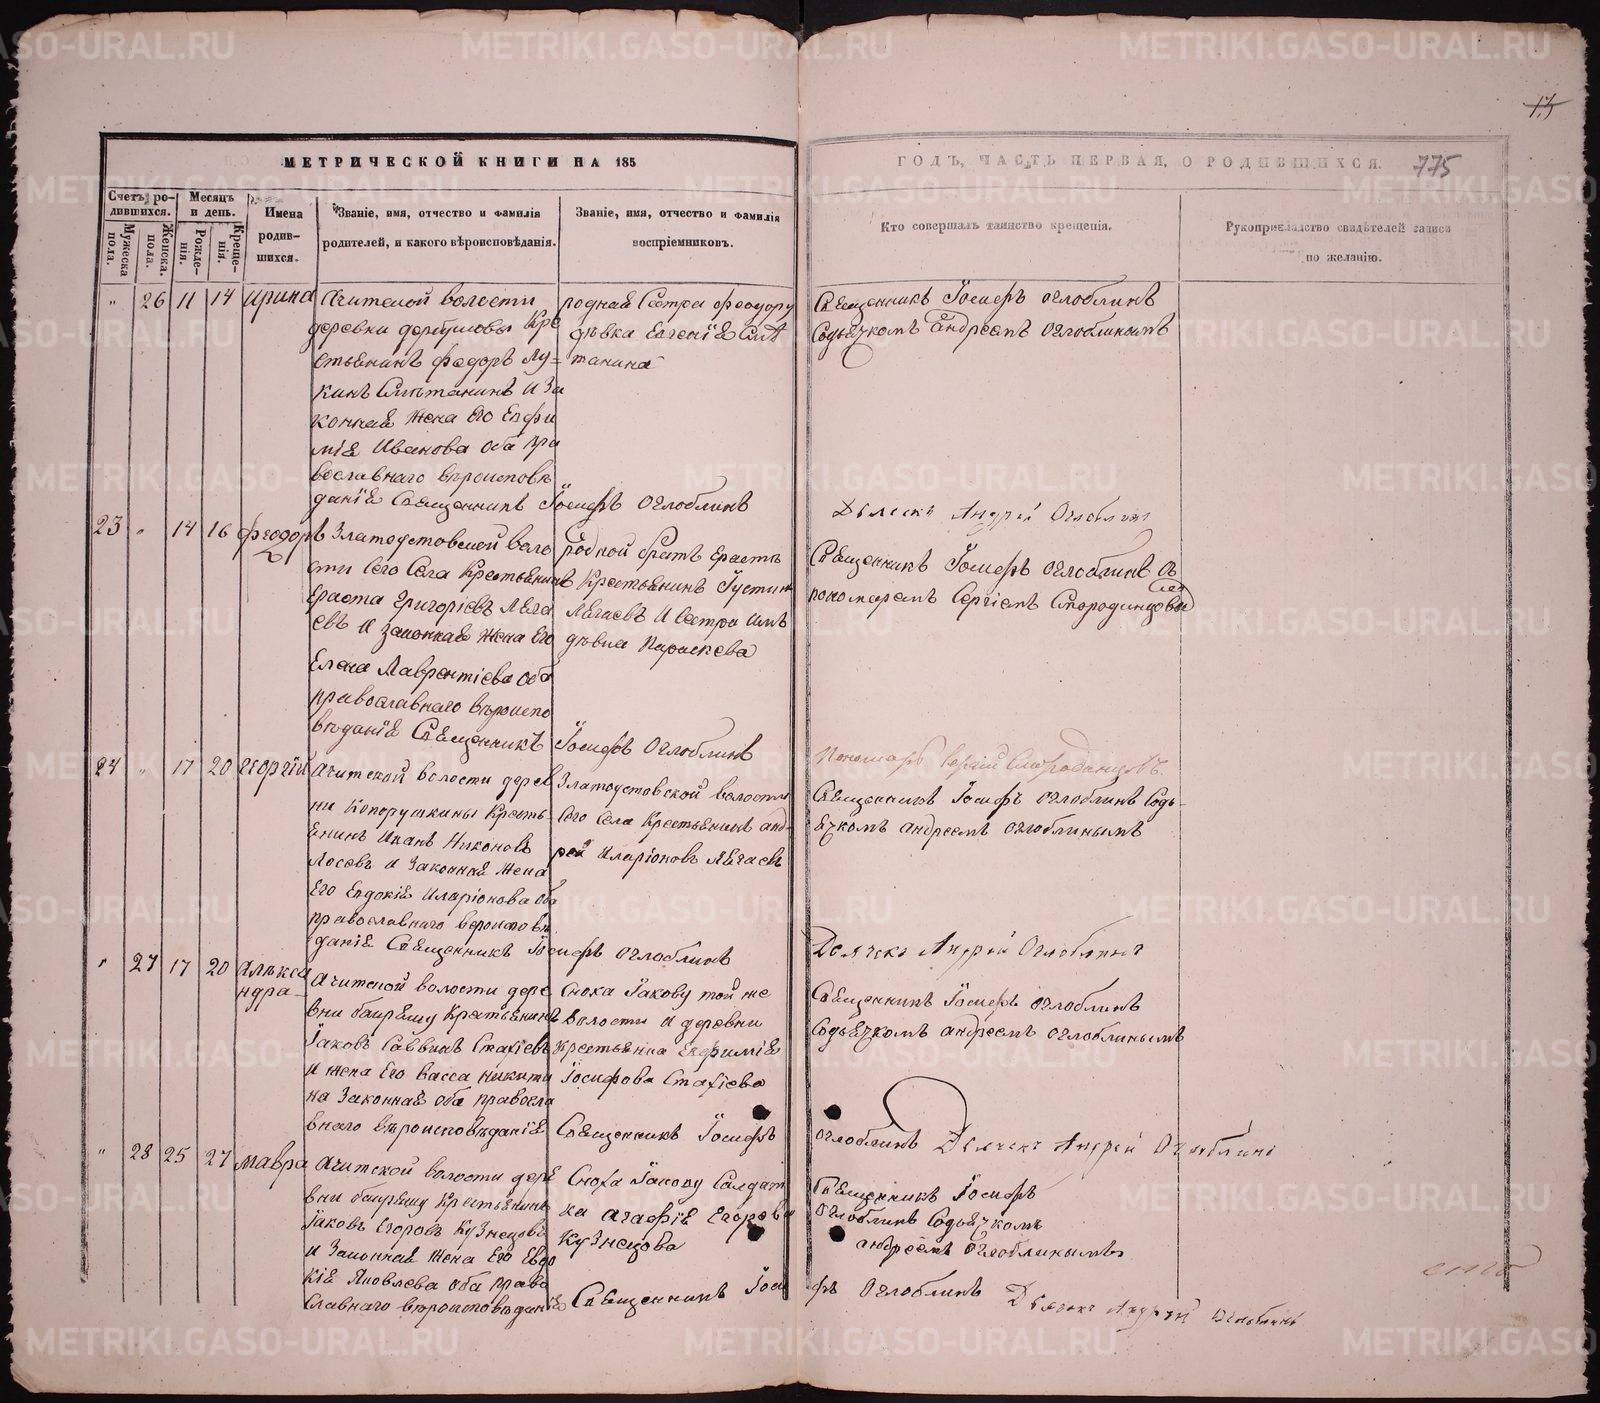 13
МЕТРИЧЕСКОЙ КНИГИ НА 185
ГОДЪ, ЧАСТЬ ПЕРВАЯ, О РОДИВШИХСЯ.
775
Счетъ родившихся.
Мужеска пола.
Женска. пола.
Мѣсяцъ и день.
Рожденія.
Крещенія.
Имена родившихся.
Званіе, имя, отчество и фамилія
родителей, и какого вѣроисповѣданія.
Званіе, имя, отчество и фамилія
воспріемниковъ.
Кто совершалъ таинство крещенія.
Рукоприкладство свидѣтелей записи
по желанію.
" 26 11 14 Ирина
Ачитской волости
деревни Кре
стьянинъ Федоръ Лу-
кинъ Смѣтанинъ и За
конная жена Его Евфи
мія Иванова оба пра
вославнаго вѣроисповѣ
данія Священникъ Іосифъ Оглоблинъ
родная Сестра Феодору
дѣвка Евгенія Смѣ
танина
Священникъ Іосифъ Оглоблинъ
Содьячкомъ Андреемъ Оглоблинымъ
Дьячекъ Андрей Оглоблинъ
23 " 14 16 Феодоръ
Златоустовской воло
сти Сего Села Крестьянинъ
Ераста Григоріевъ Легга
евъ и законная жена Его
Елена Лаврентіева оба
православнаго вѣроиспо
вѣданія Священникъ Іосифъ Оглоблинъ
родной братъ Ерастъ
Крестьянинъ Іустинъ
и сестра
дѣвка Параскева
Священникъ Іосифъ Оглоблинъ съ
пономаремъ Сергіемъ Смородинцовы
Пономарь Сергій Смородинцовъ
24 " 17 20 Георгій
Ачитской волости дерев
ни Копорушкины Кресть-
янинъ Иванъ Никоновъ
Лосевъ и Законная жена
Его Евдокія Иларіонова оба
православнаго вероисповѣ
данія Священникъ Іосифъ Оглоблинъ
Златоустовской волости
Сего Села Крестьянинъ анд-
рей Иларіоновъ
Священникъ Іосифъ Оглоблинъ Содь-
ячкомъ андреемъ Оглоблинымъ
Дьячекъ Андрей Оглоблинъ
" 27 17 20 Алекса
ндра
Ачитской волости дере
вни Крестьянинъ
Іаковъ Саввинъ Стахіевъ
и жена Его Васса Никити
на Законная оба правосла
внаго вѣроисповѣданія Священникъ Іосифъ
Сноха Іакову той же
волости и деревни
Крестьянка Евфимія
Іосифова Стахіева
Священникъ Іосифъ Оглоблинъ
Содьячкомъ андреемъ Оглоблинымъ
Оглоблинъ Дьячекъ Андрей Оглоблинъ
" 28 25 27 Мавра
Ачитской волости дере
вни Крестьянинъ
Іаковъ Егоровъ Кузнецовъ
и Законная жена Его Евдо
кія Яковлева оба право
славнаго вѣроисповѣданія Священникъ Іоси
Сноха Іакову Солдат
ка Агафія Егорова
Кузнецова
Священникъ Іосифъ
Оглоблинъ Содьячкомъ
андреемъ Оглоблинымъ
фъ Оглоблинъ Дьячекъ Андрей Оглоблинъ
METRIKI.GASO-URAL.RU